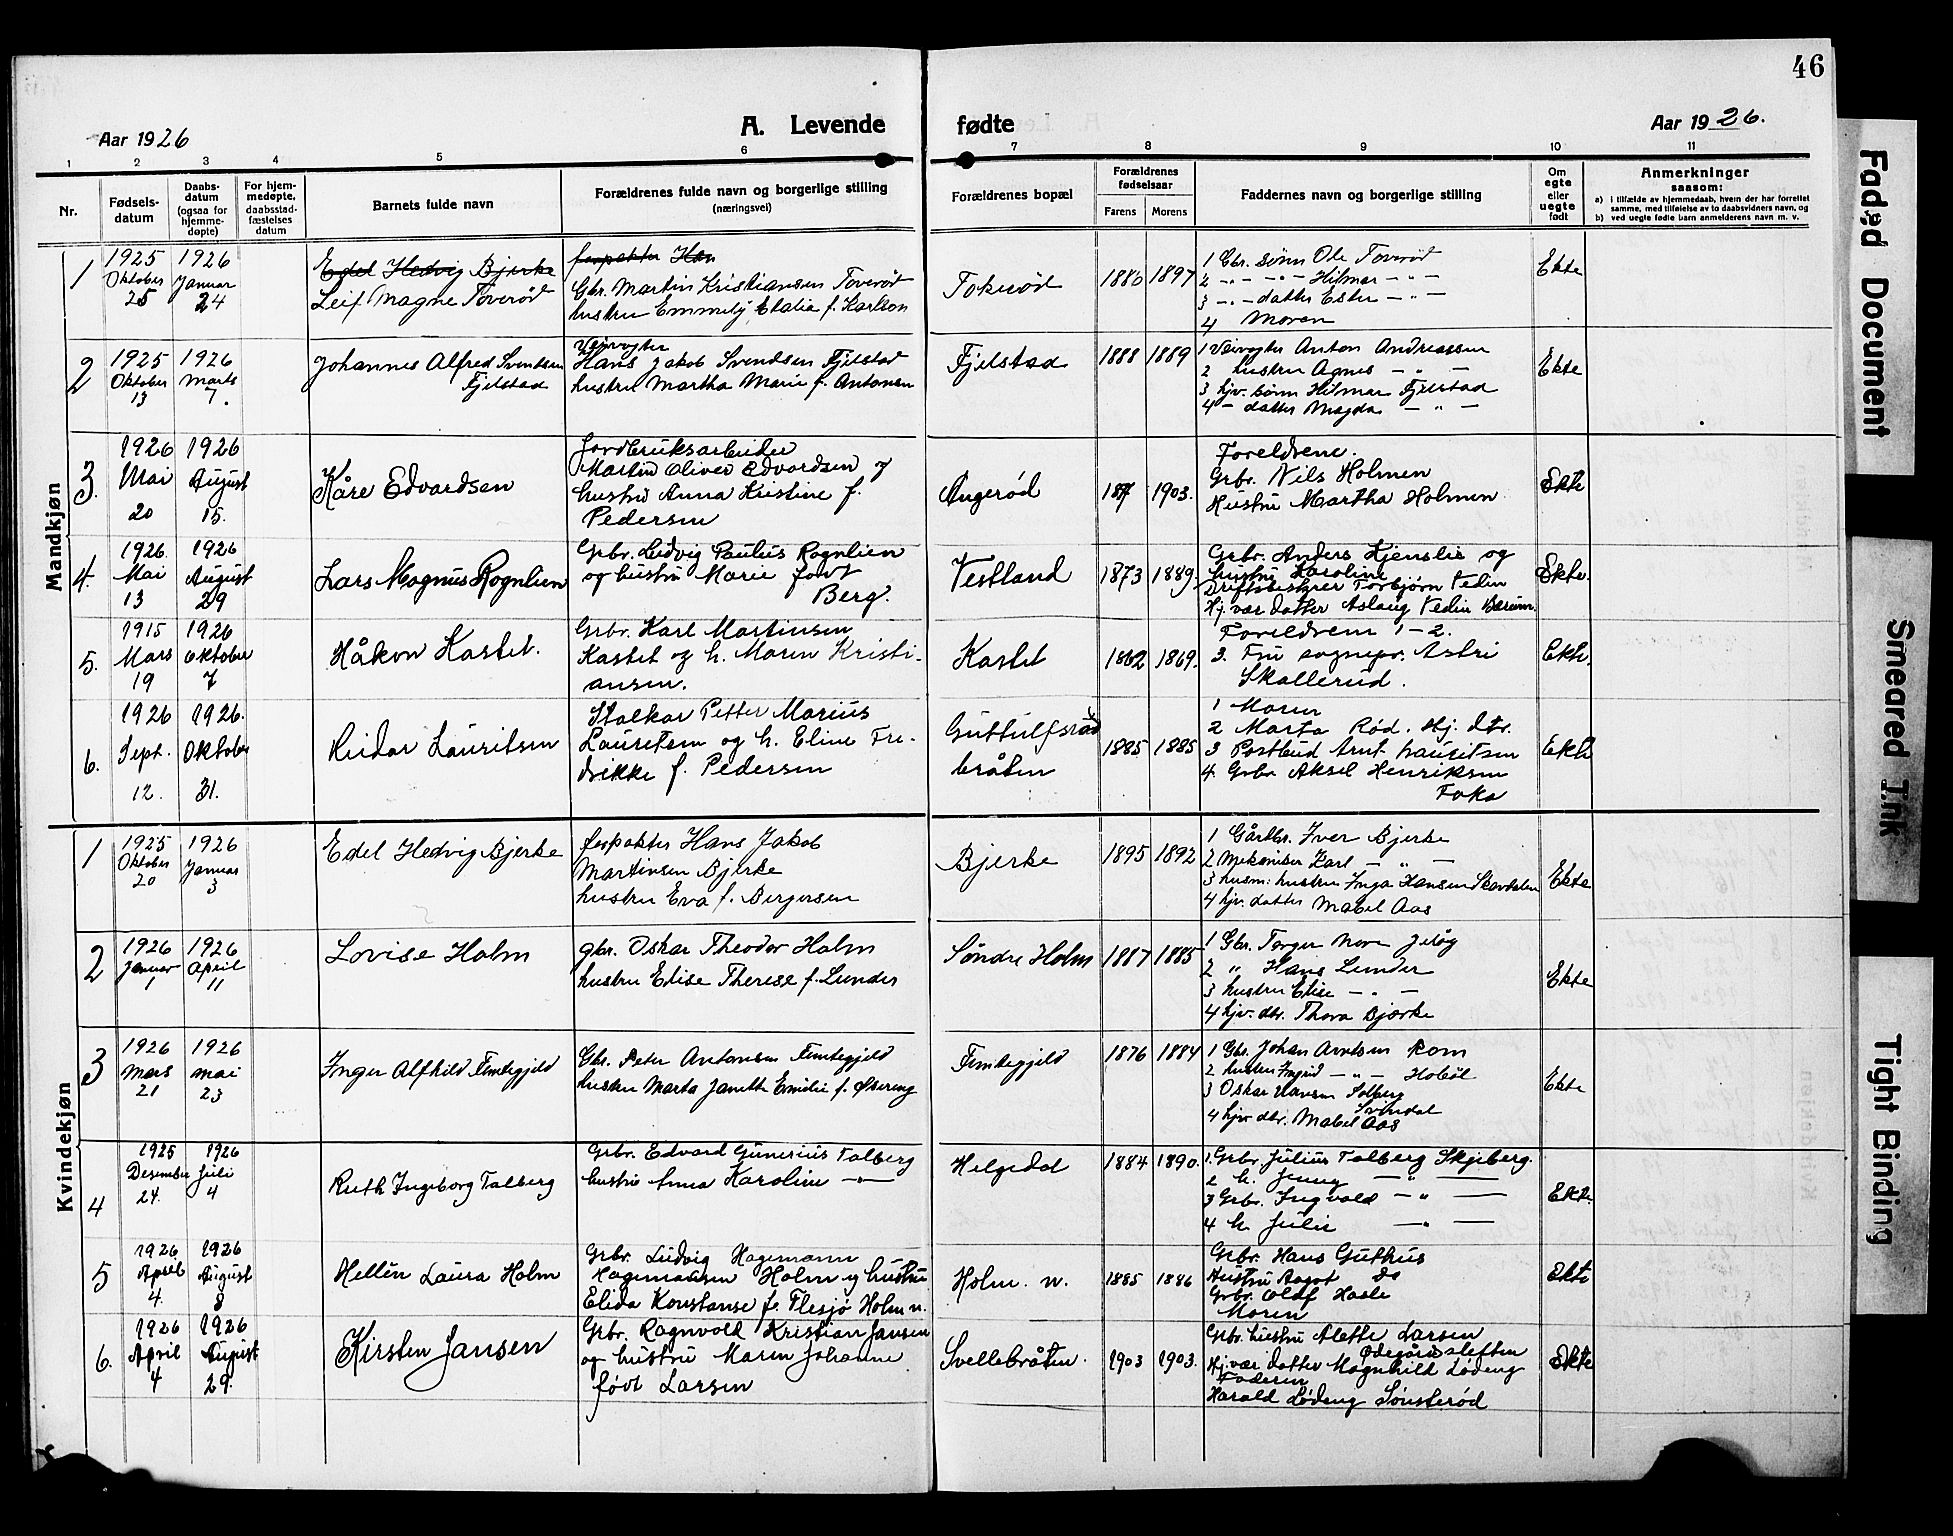 46
Aar 1926
A. Levende fødte
Aar 1926.
1 2 3 4 5 6 7 8 9 10 11
Nr.
Fødsels-
datum
Daabs-
datum
(ogsaa for
hjemme-
døpte)
For hjem-
medøpte,
daabsstad-
fæstelses
datum
Barnets fulde navn
Forældrenes fulde navn og borgerlige stilling
(næringsvei)
Forældrenes bopæl
Forældrenes
fødselsaar
Farens Morens
Faddernes navn og borgerlige stilling
Om
egte
eller
uegte
født
Anmerkninger
saasom:
a) i tilfælde av hjemmedaab, hvem der har forrettet
samme, med tilføielse av to daabsvidners navn, og
b) ved uegte fødte barn anmelderens navn m. v.
Mandkjøn
1
1925
Oktober
25
1926
Januar
24
Edel Hedvig Bjerke
Leif Magne Toverød
forpakter Han
Gbr. Martin Kristiansen Toverød
hustru Emmily Etalia f. Karlson
Tokerød
1880 1897
1 Gbr. sønn Ole Toverød
2 -"- -"- Hilmar -"-
3 -"- datter Ester -"-
4 Moren
Ekte
2
1925
Oktober
13
1926
Marts
7.
Johannes Alfred Svendsen
Fjelstad
Veivogter
Hans Jakob Svendsen Fjelstad
hustru Martha Marie f. Antonsen
Fjelstad
1888 1889
1 Veivogter Anton Andreassen
2 hustru Agnes - " -
3 hjv. sønn Hilmar Fjelstad
4 - datter Magda - " -
Ekte
3.
1926
Mai
20
1926
August
15.
Kåre Edvardsen
Jordbruksarbeider
Martin Oliver Edvardsen og
hustru Anna Kristine f.
Pedersen
Angerød
1903.
Foreldrene.
Grbr. Nils Holmen
Hustru Martha Holmen
Ekte
4.
1926.
Mai
13
1926
August
29
Lars Magnus Rognlien
Grbr. Ludvig Paulus Rognlien
og hustru Marie født
Berg.
Vestland
1873 1889.
Grbr. Anders Kjenslie og
hustru Karoline
Driftsbestyrer Torbjørn Vedin
Hj. vær. datter Aslaug Vedin Bærum.
Ekte.
5.
1915
Mars
19
1926
Oktober
7
Håkon Kastet.
Grbr. Karl Martinsen
Kastet og h. Maren Kristi-
ansen.
Kastet
1862 1869.
Foreldrene 1-2.
3. Fru sognepr. Astri
Skallerud.
Ekte.
6.
1926
Sept.
12.
1926.
Oktober
31.
Reidar Lauritsen
Stalkar Petter Marius
Lauretsen og h. Eline Fre-
drikke f. Pedersen
Guttulfsrød
bråten
1885 1885
1 Moren
2 Marta Rød. Hj. dtr.
3 Postbud Arnt Lauritsen
4. Grbr. Aksel Henriksen
Foka
Ekte
Kvindekjøn
1
1925
Oktober
20
1926
Januar
3
Edel Hedvig Bjerke
forpakter Hans Jakob
Martinsen Bjerke
hustru Eva f. Bergersen
Bjerke
1895 1892
1 Gårdbr. Iver Bjerke
2 Mekaniker Karl - " -
3 husm: hustru Inga Hansen Skavdalen
4 hjv. datter Mabel Aas
Ekte
2
1926
Januar
1
1926
April
11
Lovise Holm
gbr. Oskar Theodor Holm
hustru Elise Therese f. Lunder
Søndre Holm
1887 1885
1 Gbr. Torger Moen Jeløy
2 " Hans Lunder
3 hustru Elise - " -
4 hjv. dtr. Thora Bjørke
Ekte
3
1926
Mars
21
1926
Mai
23
Inger Alfhild Fintegjeld
Gbr. Peter Antonsen Fintegjeld
hustru Marta Janette Emilie f. Østereng
Fintegjeld
1876 1884
1 Gbr. Johan Arntsen Rom
2 hustru Ingrid -"- Hobøl
3 Oskar Hansen Solberg
Svindal
4 hjv. dtr. Mabel Aas
Ekte
4
1925
Desember
24.
1926
Juli
4
Ruth Ingeborg Talberg
Grbr. Edvard Gunerius Talberg
hustru Anna Karoline -"-
Helgedal
1884 1890.
1. Grbr. Julius Talberg Skjeberg.
2 h. Jenny -"-
3 Grbr. Ingvald -"-
4 h. Julie -"-
Ekte.
5
1926
April
4.
1926
August
8
Hellen Laura Holm
Grbr. Ludvig Hagemann
Hagemansen Holm og hustru
Elida Konstanse f. Flesjø Holm n.
Holm. n.
1885 1886
Grbr. Hans Guthus
Hustru Aagot Do
Grbr. Olaf Hasle
Moren
Ekte
6.
1926
April
4
1926
August
29.
Kirsten Jansen
Grbr. Ragnvald Kristian Jansen
og hustru Maren Johanne
født Larsen
Svellebråten.
1903 1903.
Grbr. hustru Alette Larsen
Ødegårdsletten
Hj. vær. datter Magnhild Lødeng
Faderen
Harald Lødeng Sønsterød
Ekte
Faded Document
Smeared Ink
Tight Binding